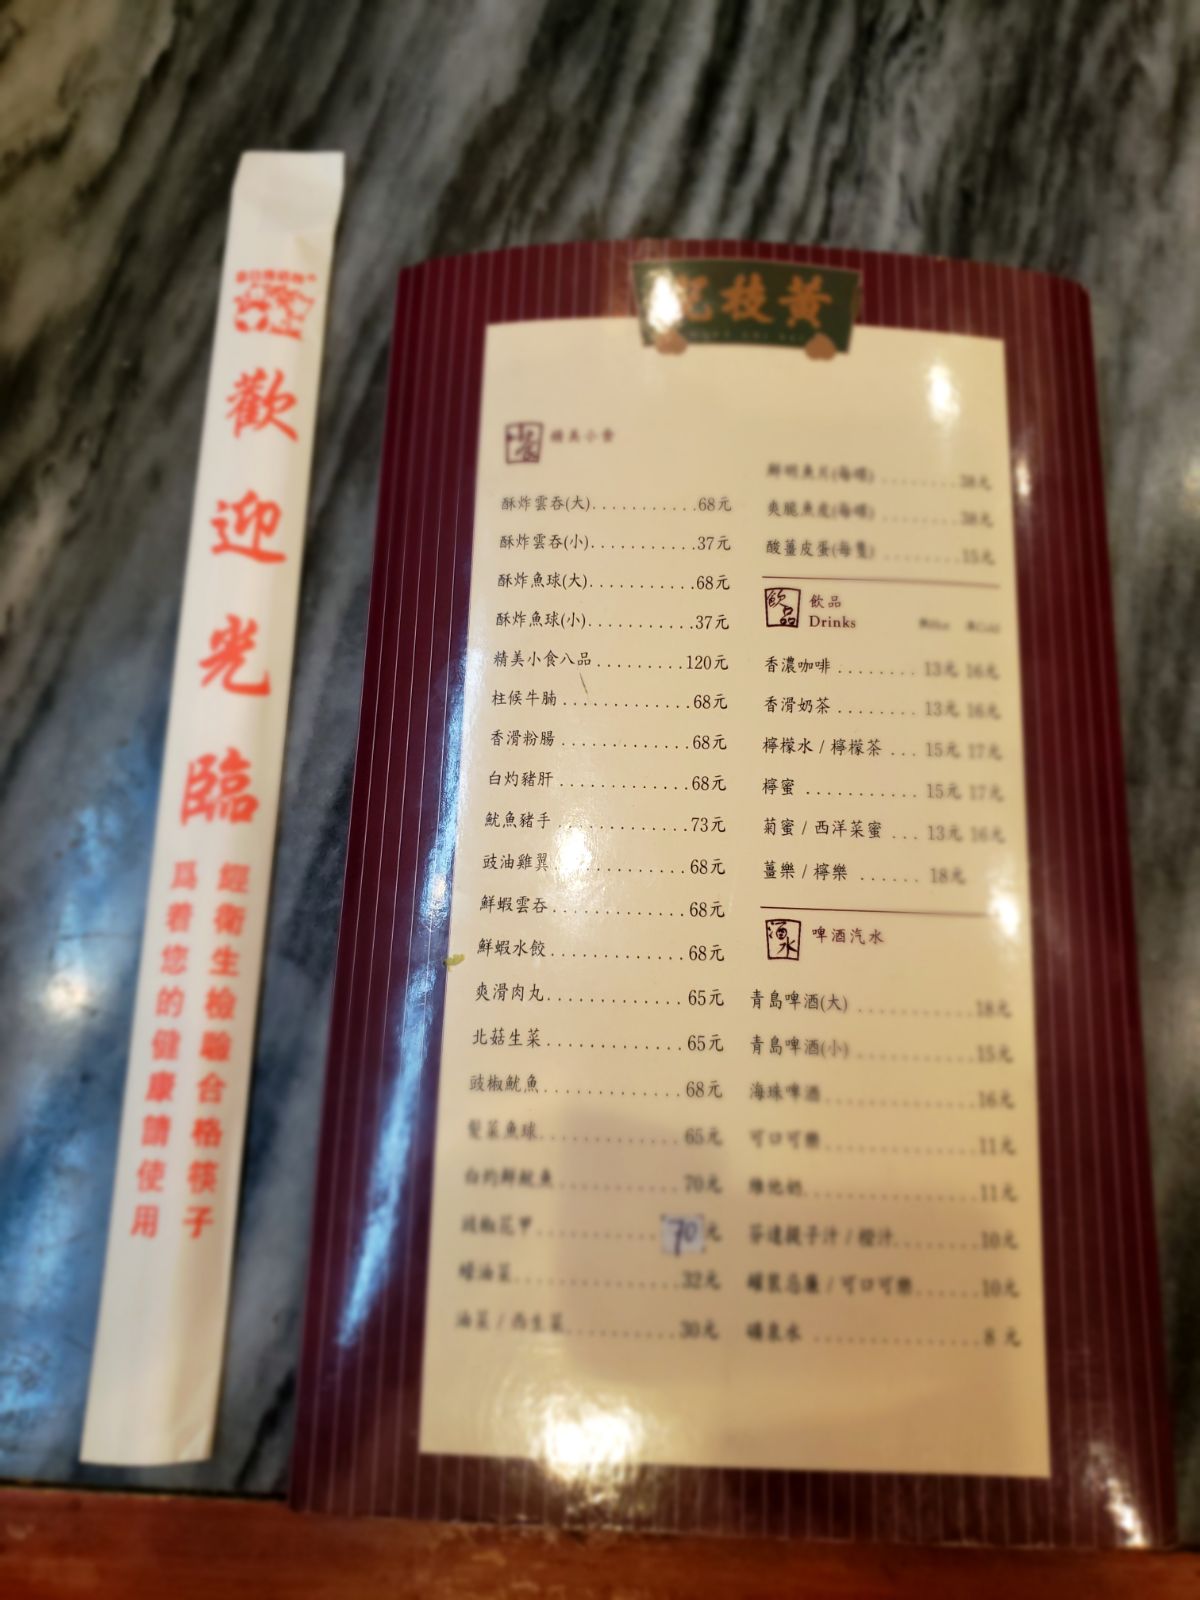 歡迎光臨
經衛生檢驗合格筷子
爲着您的健康請使用
黃枝記
小食 精美小食
酥炸雲吞(大)...........68元
酥炸雲吞(小)...........37元
酥炸魚球(大)...........68元
酥炸魚球(小)...........37元
精美小食八品.........120元
柱候牛腩.............68元
香滑粉腸.............68元
白灼豬肝.............68元
魷魚豬手.............73元
豉油雞翼.............68元
鮮蝦雲吞.............68元
鮮蝦水餃.............68元
爽滑肉丸.............65元
北菇生菜.............65元
豉椒魷魚.............68元
髮菜魚球.............65元
白灼鮮魷魚...........70元
豉椒花甲...........70元
蠔油菜...............32元
油菜 / 西生菜..........30元
鮮明魚片(每碟).........38元
爽脆魚皮(每碟).........38元
酸薑皮蛋(每隻).........15元
飲品 飲品
Drinks 熱Hot 凍Cold
香濃咖啡........13元 16元
香滑奶茶........13元 16元
檸檬水 / 檸檬茶...15元 17元
檸蜜...........15元 17元
菊蜜 / 西洋菜蜜...13元 16元
薑樂 / 檸樂......18元
酒水 啤酒汽水
青島啤酒(大)............18元
青島啤酒(小)............15元
海珠啤酒...............16元
可口可樂...............11元
維他奶................11元
芬達提子汁 / 橙汁........10元
罐裝忌廉 / 可口可樂.......10元
礦泉水................8元